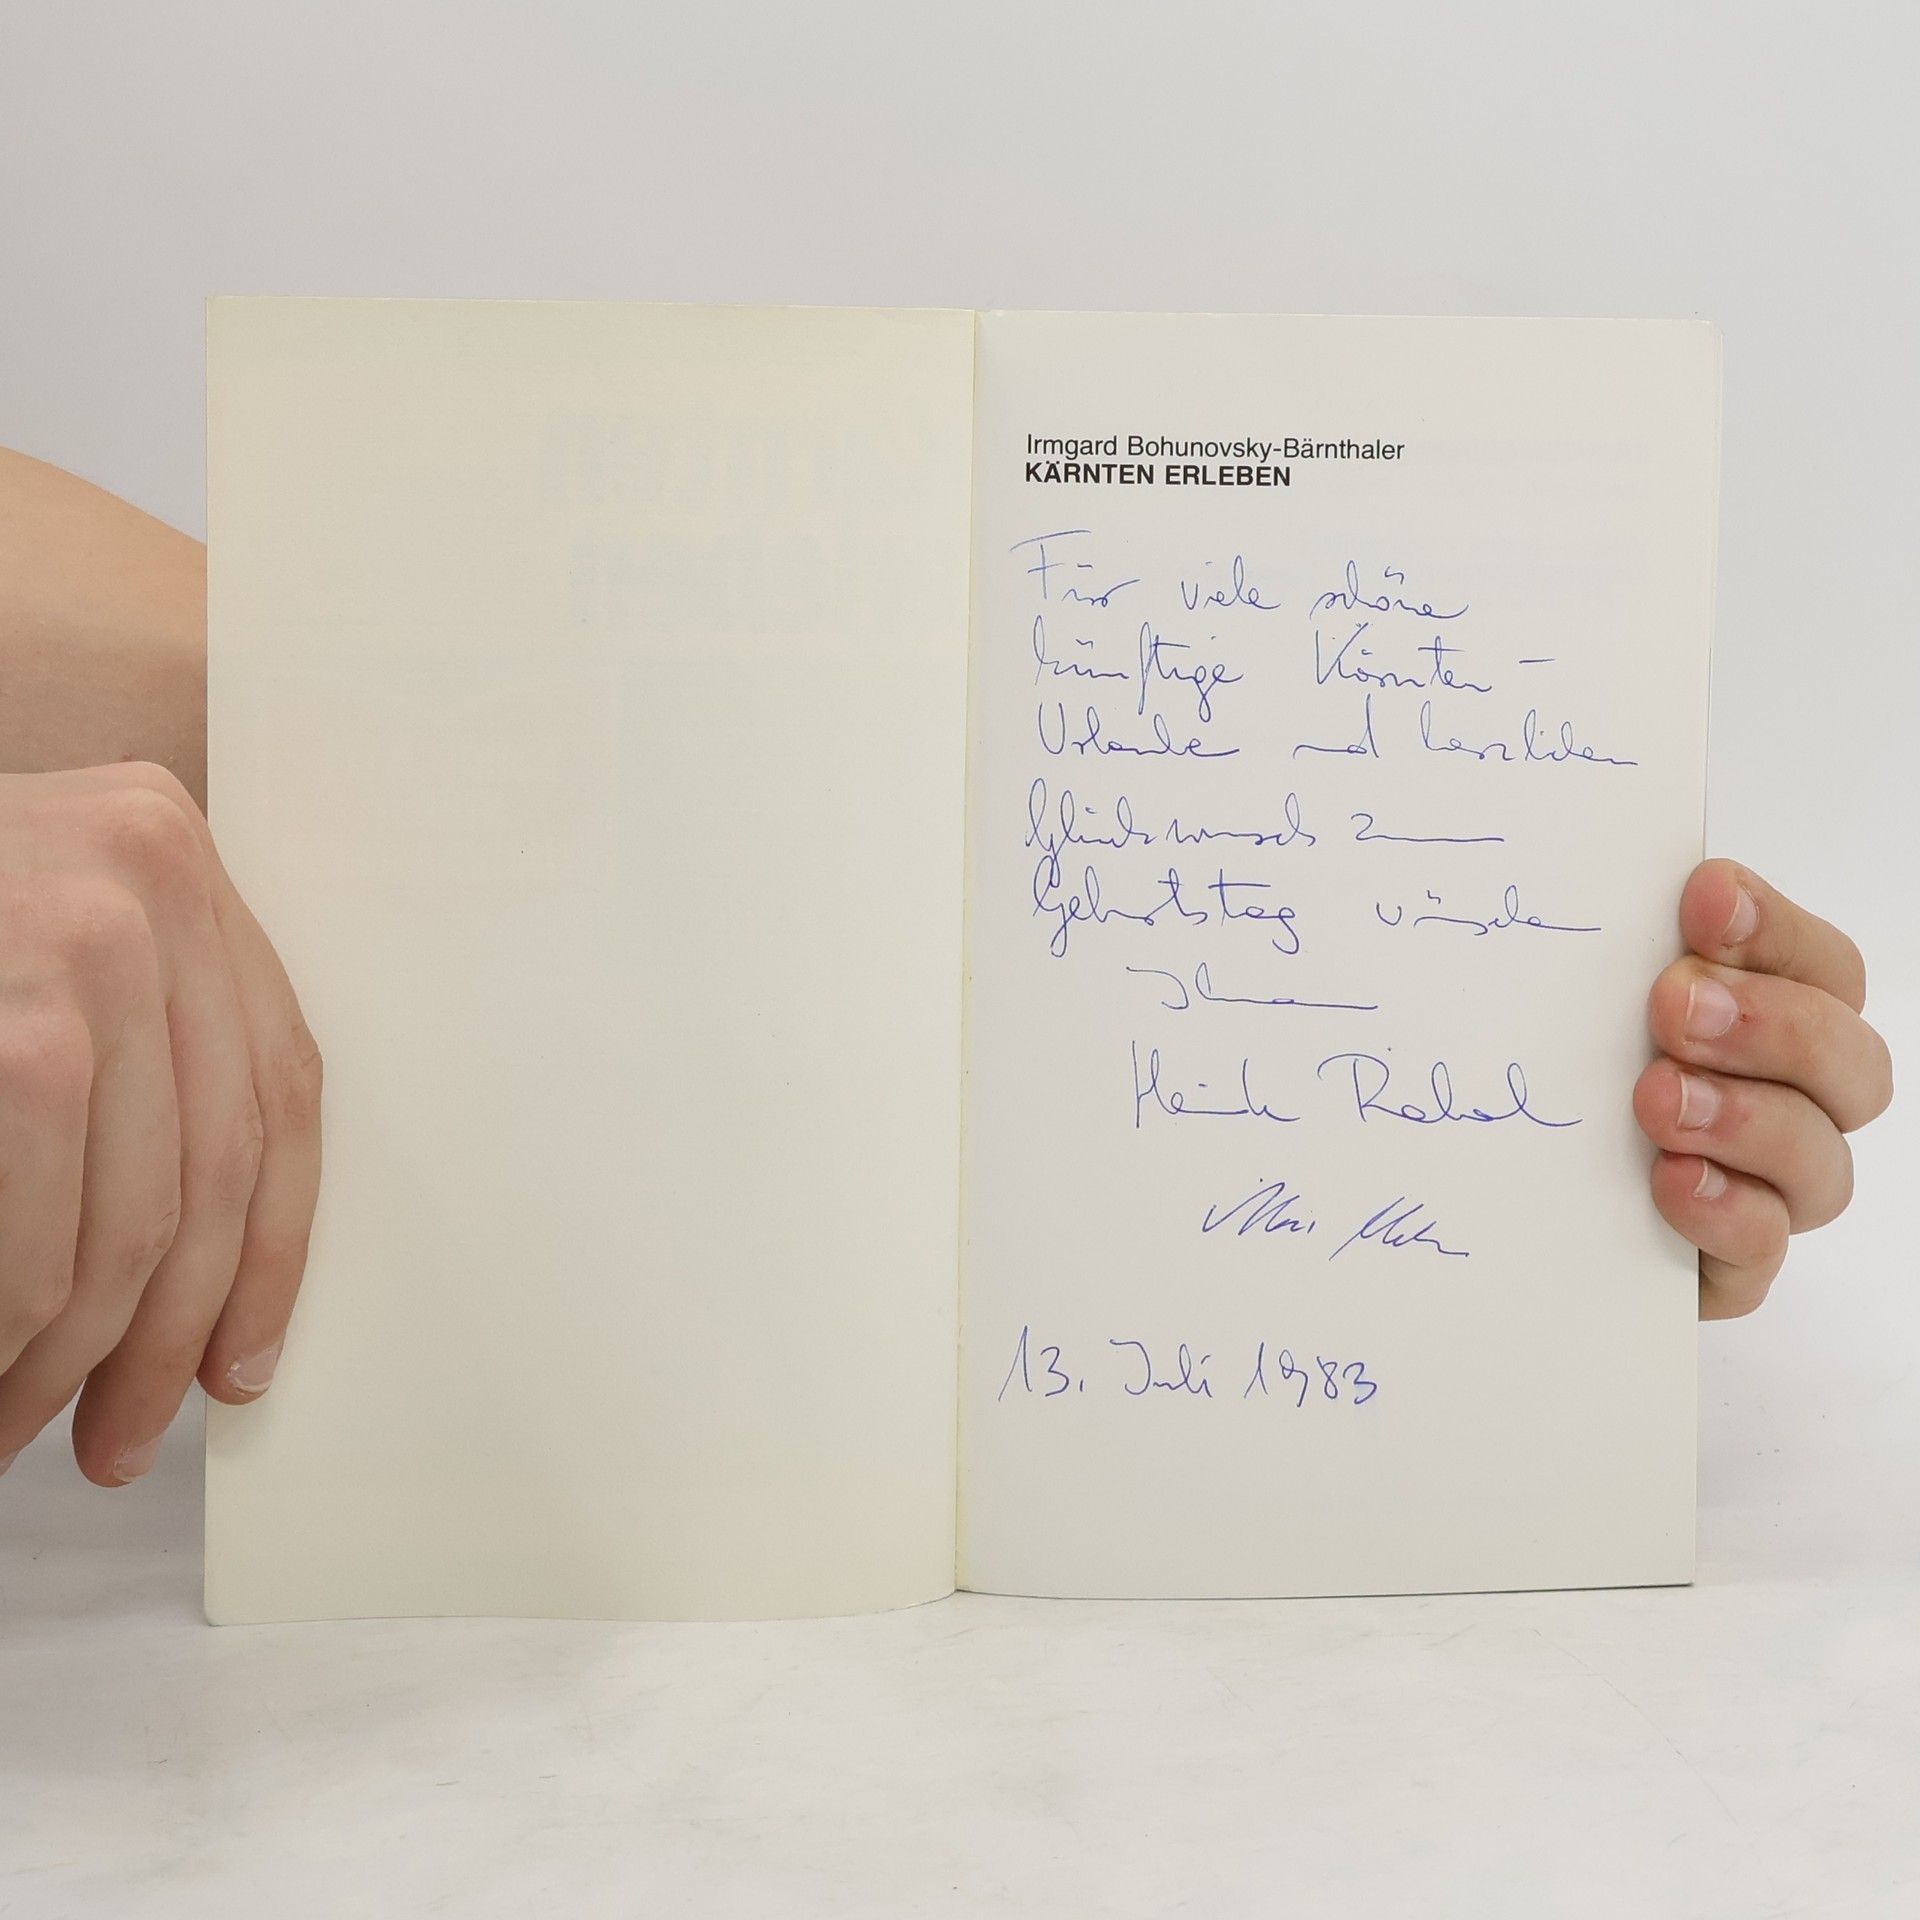 Irmgard Bohunovsky-Bärnthaler
KÄRNTEN ERLEBEN
Für viele schöne
künftige Kärnten-
Urlaube und herzlichen
Glückwunsch zum
Geburtstag wünschen
Ihnen
13. Juli 1983